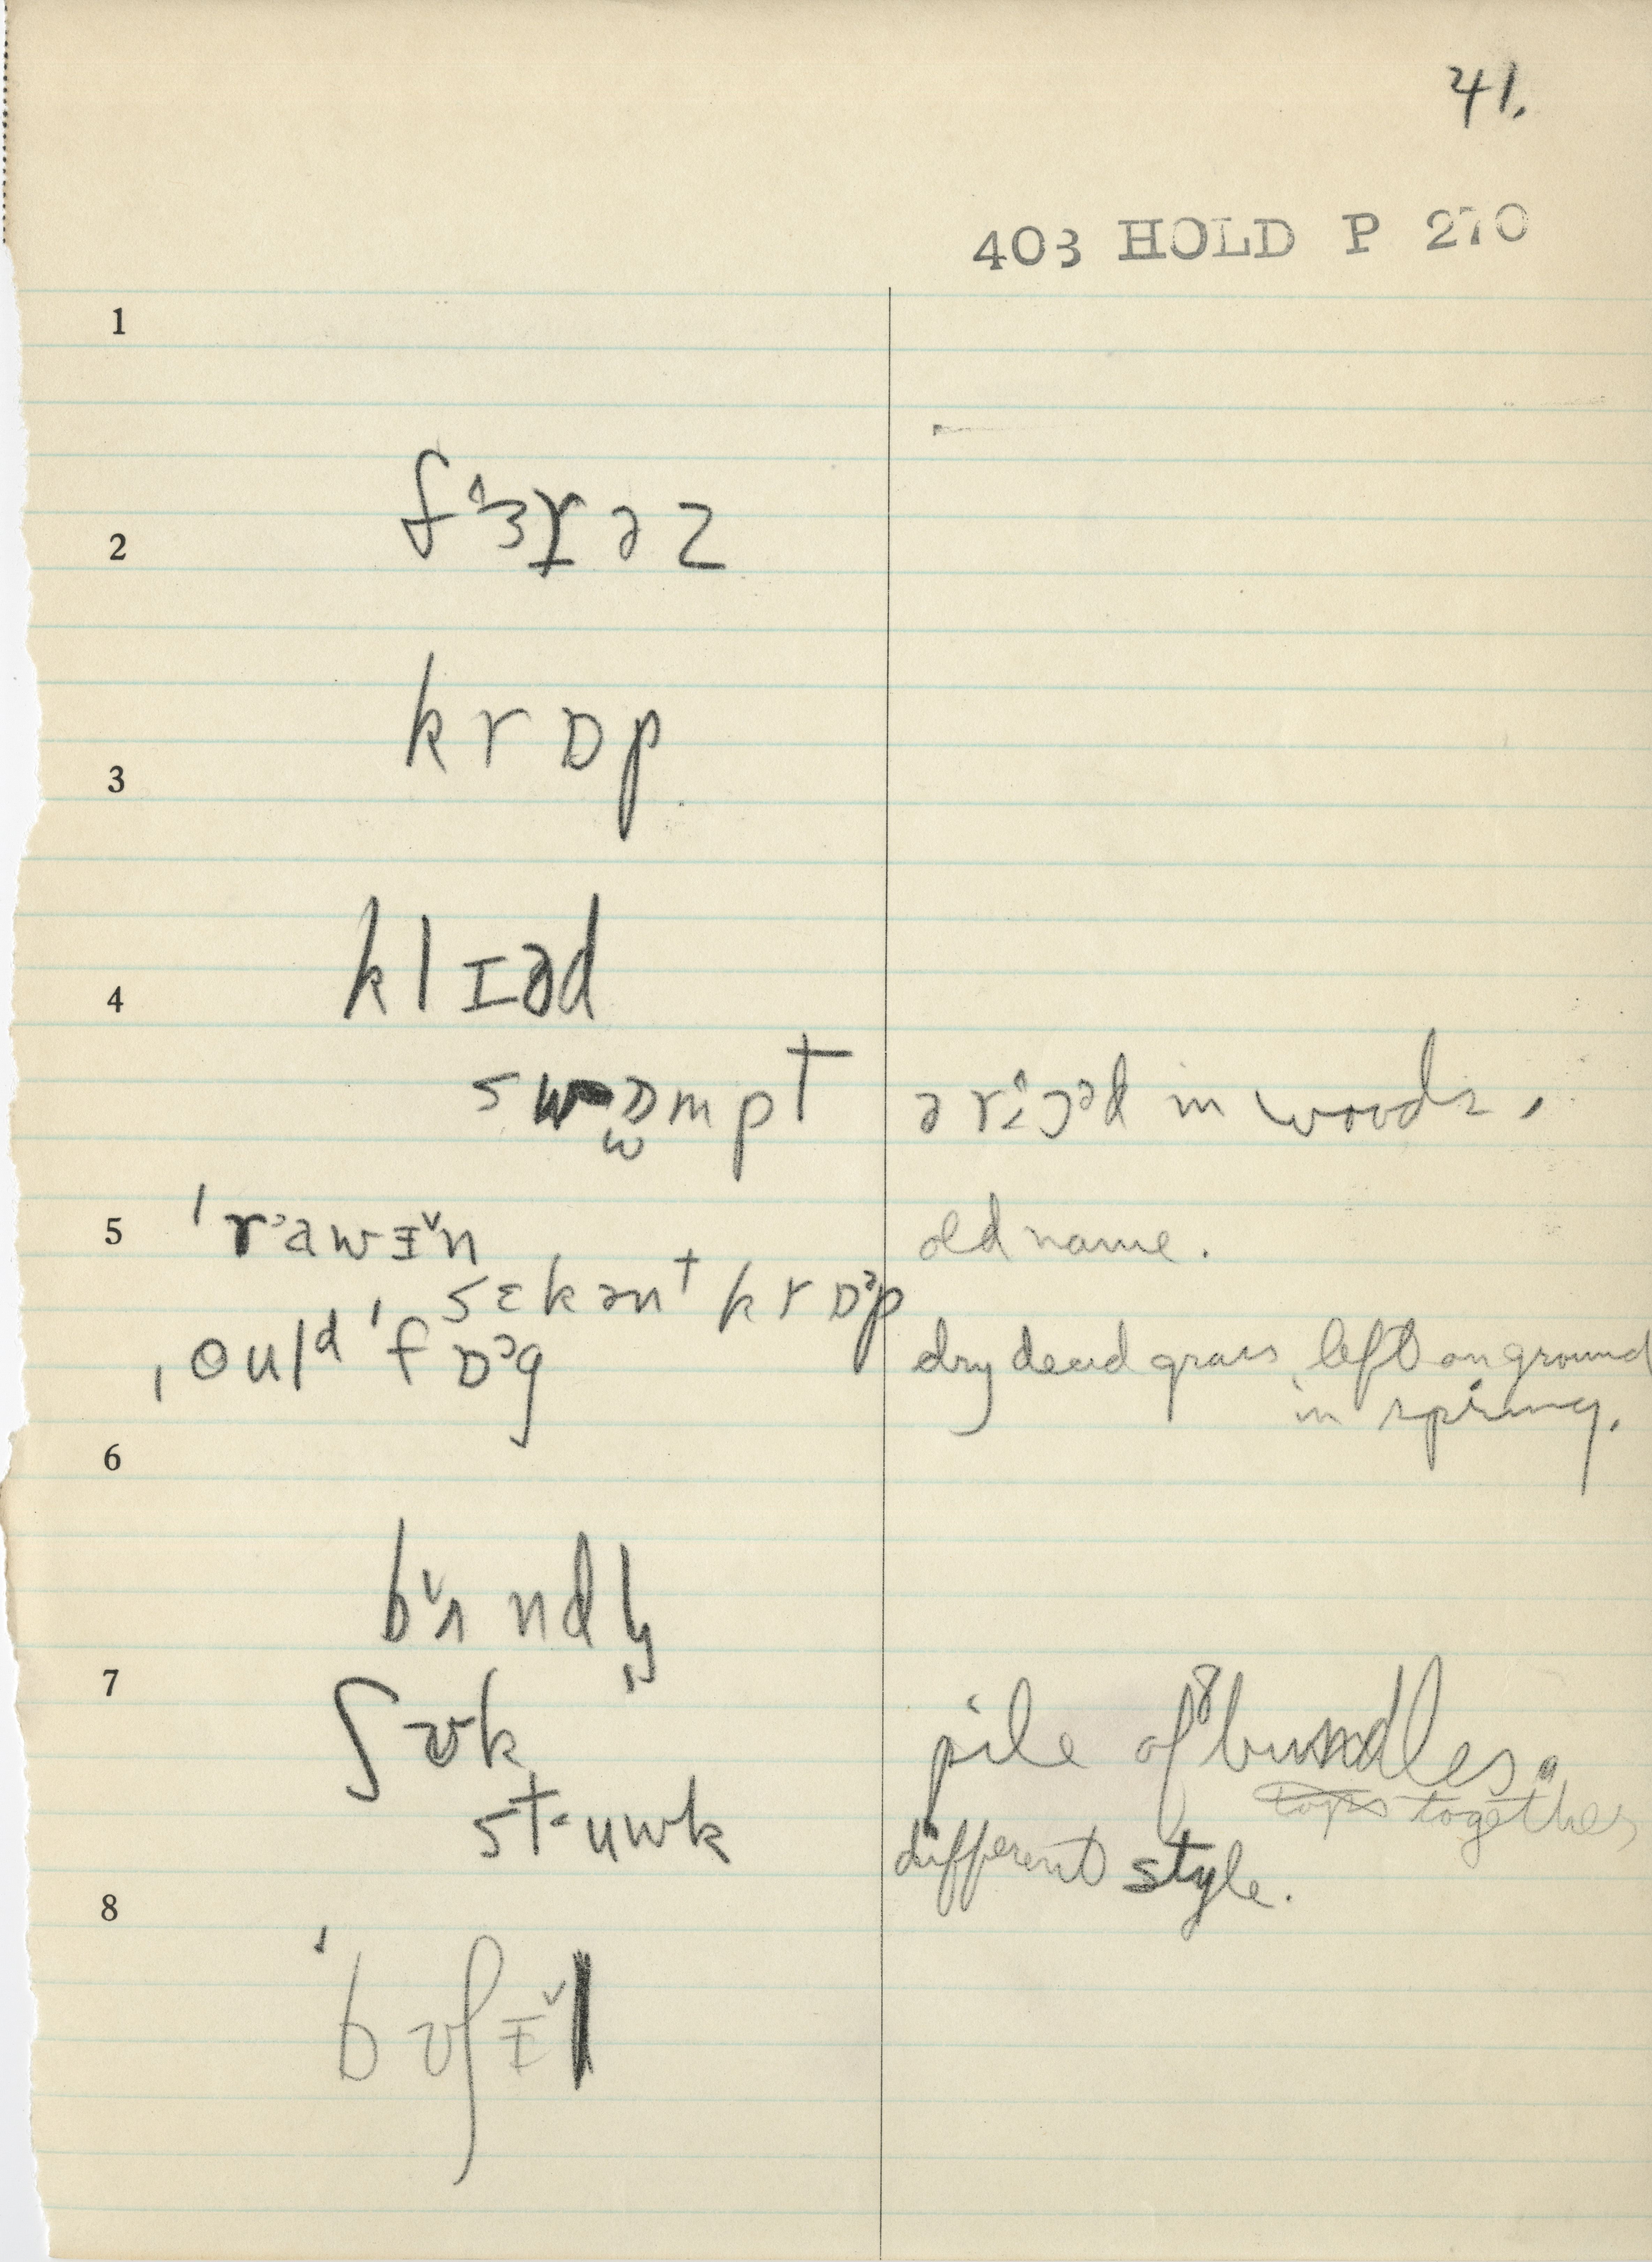 41.
403 HOLD P 270
1
2 f ɜ r ə z
3 k r ɒ p
4 k l ɪ ə d
s w ɒ m p t in woods,
5 ˈr a w ɪ n old name.
s ɛ k ə n t k r ɒ ə p
ˌo u l d ˈf ɒ ɔ g dry dead grass left on ground
in spring.
6
b ʌ n d l̩
7
ʃ ʊ k pile of 8 bundles.
tops together
s t ʉ w k different style.
8
ˈb ʊ ʃ ɪ l